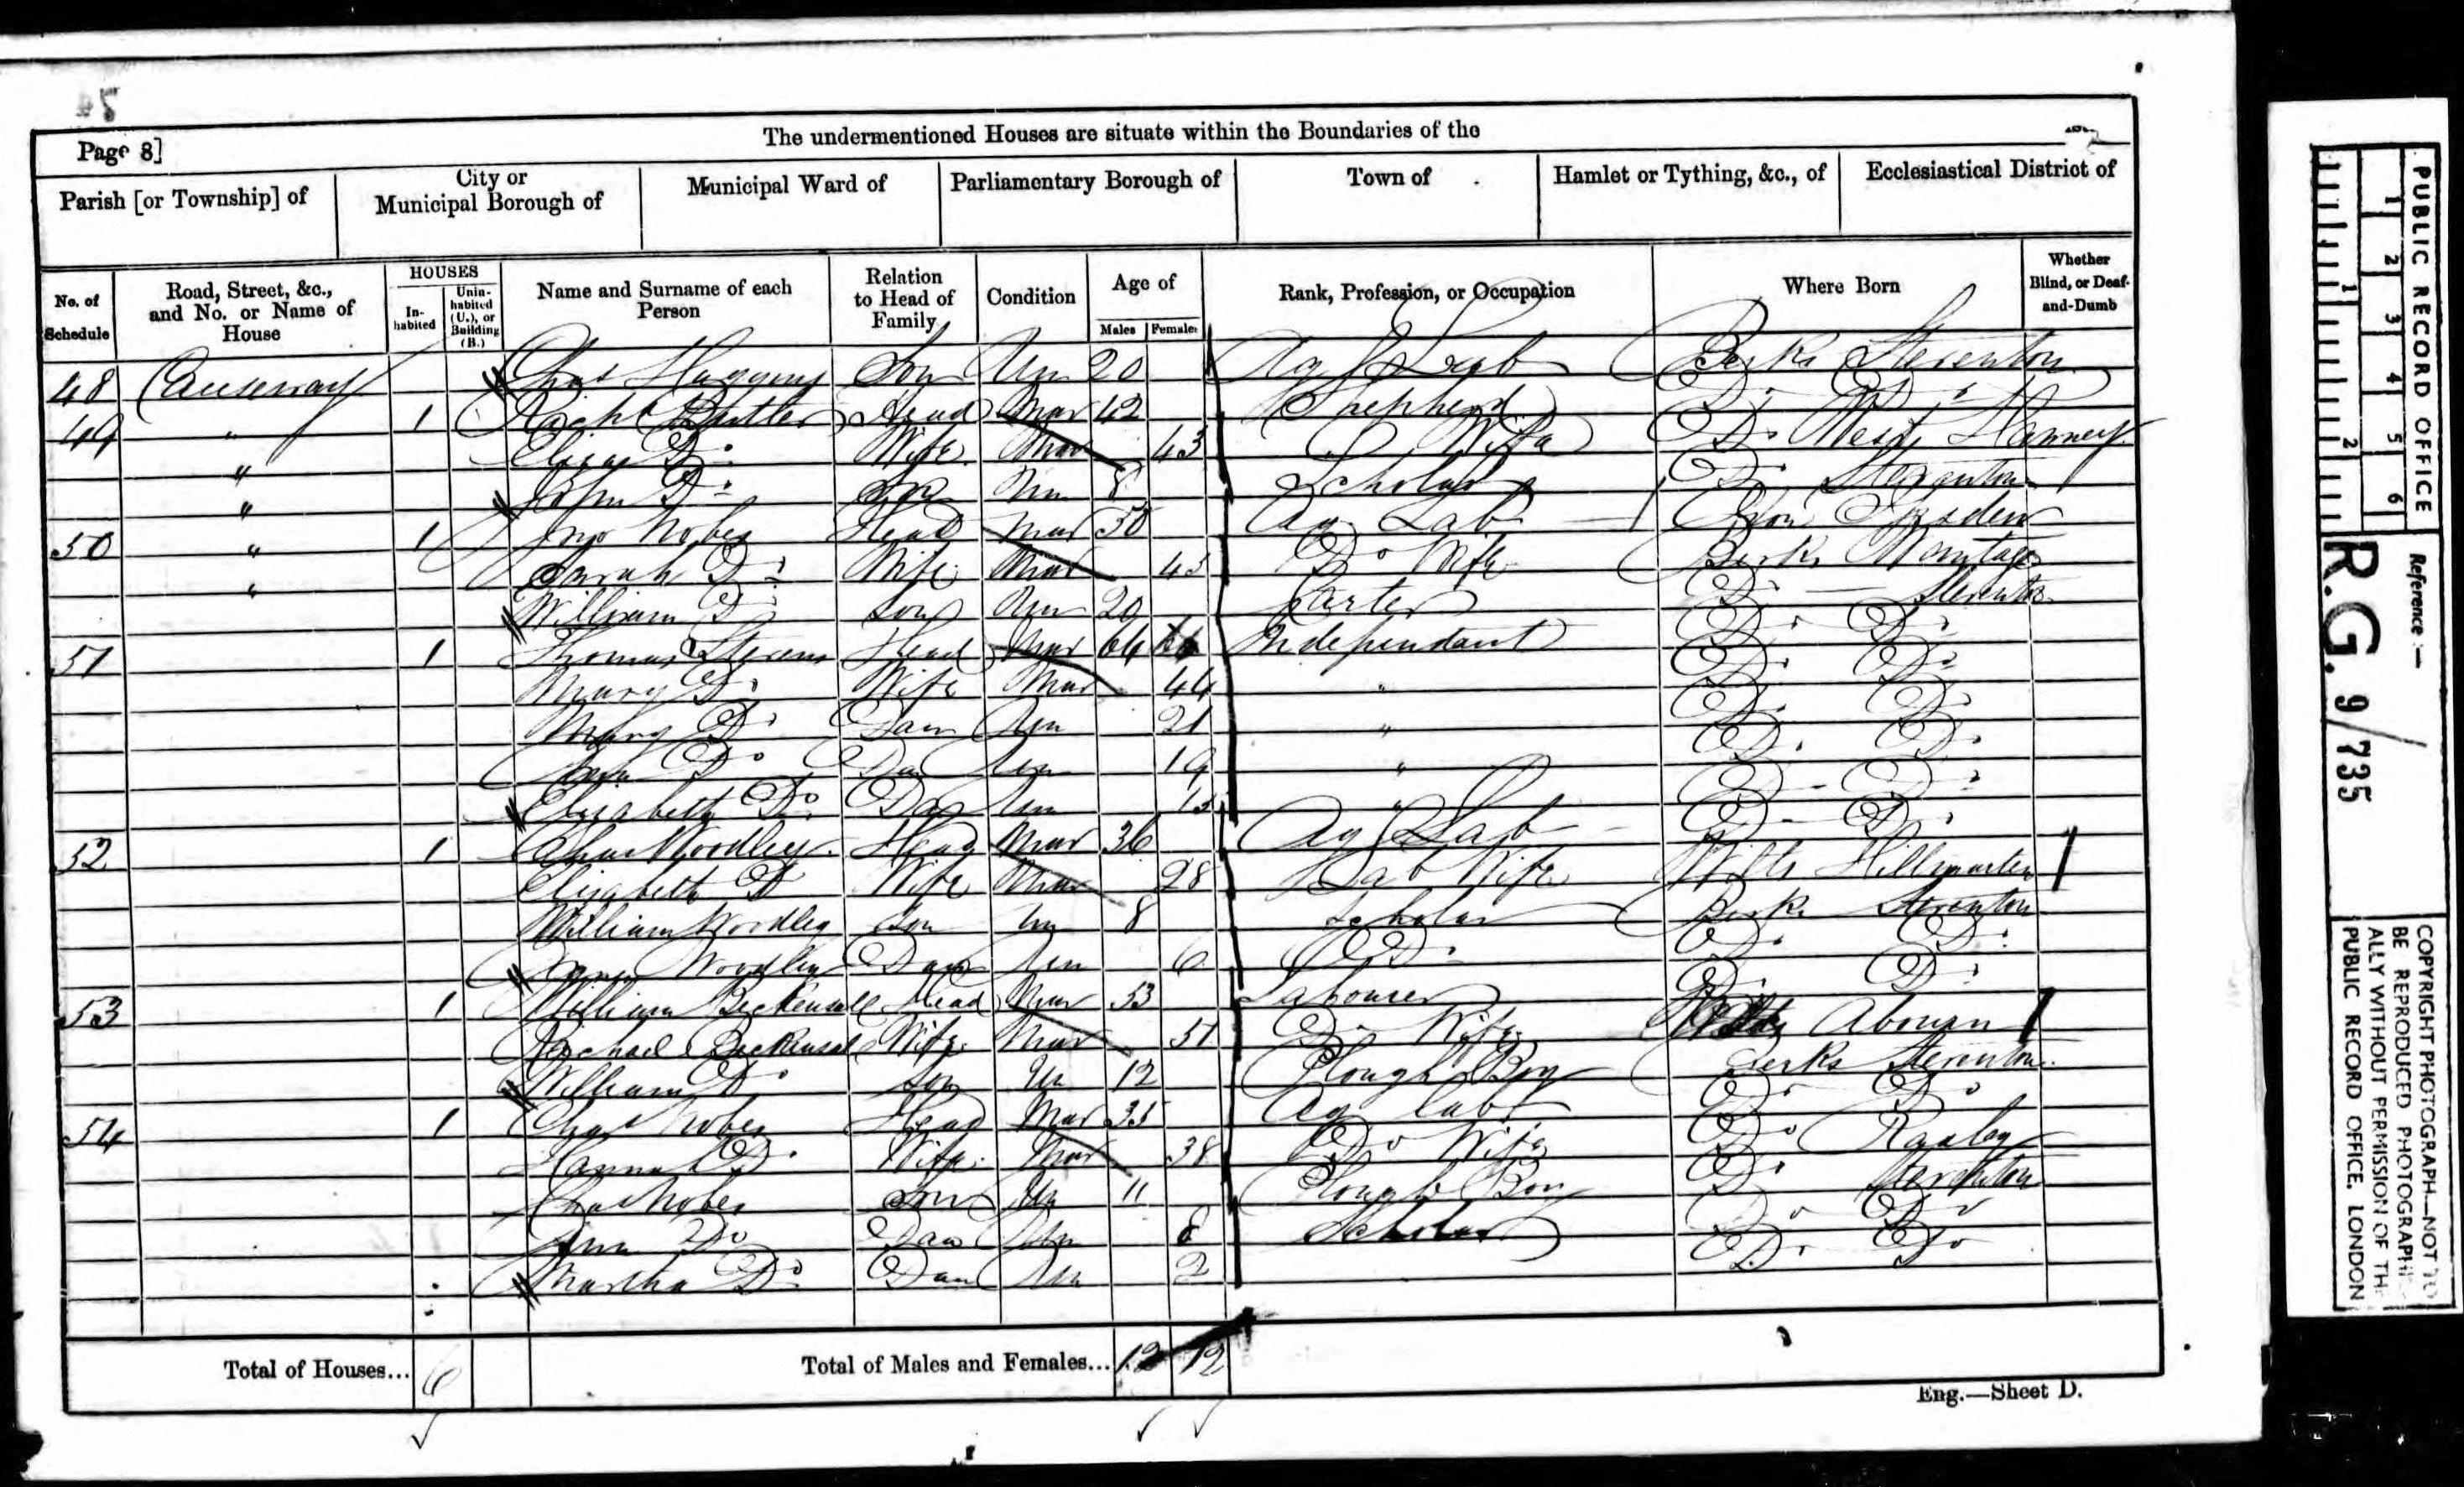 Page 8]
The undermentioned Houses are situate within the Boundaries of the
Parish [or Township] of
City or Municipal Borough of
Municipal Ward of
Parliamentary Borough of
Town of
Hamlet or Tything, &c., of
Ecclesiastical District of
No. of Schedule
Road, Street, &c., and No. or Name of House
HOUSES
In-habited
Unin-habited (U.), or Building (B.)
Name and Surname of each Person
Relation to Head of Family
Condition
Age of
Males Females
Rank, Profession, or Occupation
Where Born
Whether Blind, or Deaf-and-Dumb
48 Causeway Chas Son Un 20 Ag Lab Berks Steventon
49 " 1 Richd Butler Head Mar 42 Shepherd Do Do
" Eliza Do Wife Mar 43 Wife Do West Hanney
" John Do Son Un 8 Scholar Do Steventon
50 " 1 Jno Nobes Head Mar 50 Ag Lab Oxon Ipsden
" Sarah Do Wife Mar 43 Do Wife Berks Wantage
William Do Son Un 20 Carter Do Steventon
51 1 Thomas Stevens Head Mar 66 Independant Do Do
Mary Do Wife Mar 44 " Do Do
Mary Do Daur Un 21 " Do Do
Do Dau Un 19 " Do Do
Elizabeth Do Dau Un 15 " Do Do
52 1 Chas Woodley Head Mar 36 Ag Lab Do Do
Elizabeth Do Wife Mar 28 Lab Wife Wilts Hillmarten
William Woodley Son Un 8 Scholar Berks Steventon
Woodley Daur Un 6 Do Do Do
53 1 William Beckensale Head Mar 53 Labourer Do Do
Rachael Beckensale Wife Mar 51 Do Wife Wilts Abourn
William Do Son Un 12 Plough Boy Berks Steventon
54 1 Chas Nobes Head Mar 35 Ag Lab Do Do
Hannah Do Wife Mar 38 Do Wife Do
Chas Nobes Son Un 11 Plough Boy Do Steventon
Ann Do Dau Un 8 Scholar Do Do
Martha Do Daur Un 2 Do Do
Total of Houses... 6
Total of Males and Females... 12 12
Eng.—Sheet D.
PUBLIC RECORD OFFICE
1 2 3 4 5 6
1 2
Reference :—
R.G. 9/735
COPYRIGHT PHOTOGRAPH—NOT TO
BE REPRODUCED PHOTOGRAPHIC-
ALLY WITHOUT PERMISSION OF THE
PUBLIC RECORD OFFICE, LONDON